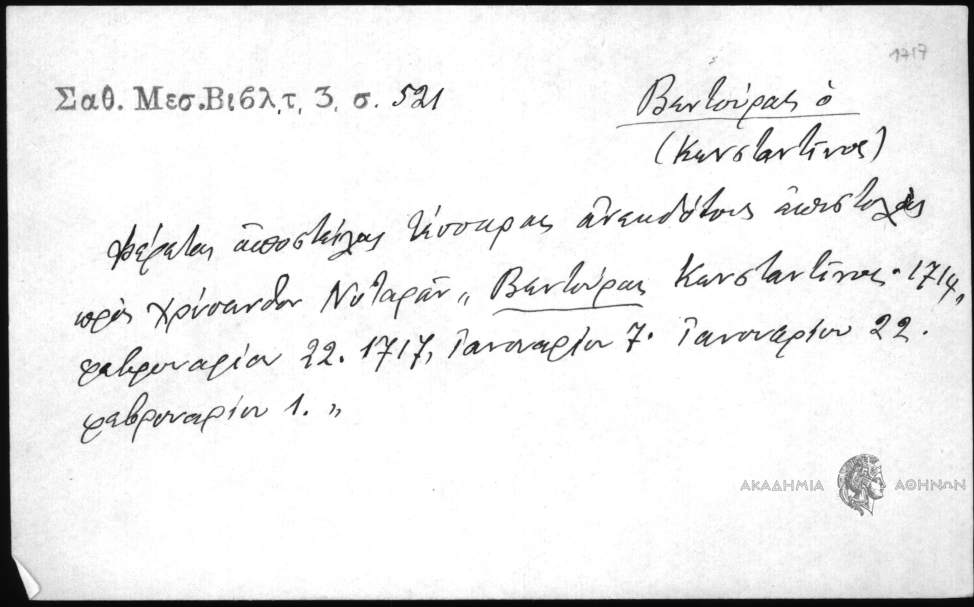 1717
Σαθ. Μεσ.Βιβλ,τ, 3, σ. 521
Βεντούρας ὁ
(Κωνσταντῖνος)
Φέρεται ἀποστείλας τέσσαρας ἀνεκδότους ἐπιστολὰς
πρὸς Χρύσανθον Νοταρᾶν „ Βεντούρας Κωνσταντῖνος· 1714,
φεβρουαρίου 22. 1717, ἰανουαρίου 7. ἰανουαρίου 22.
φεβρουαρίου 1. „
ΑΚΑΔΗΜΙΑ ΑΘΗΝΩΝ